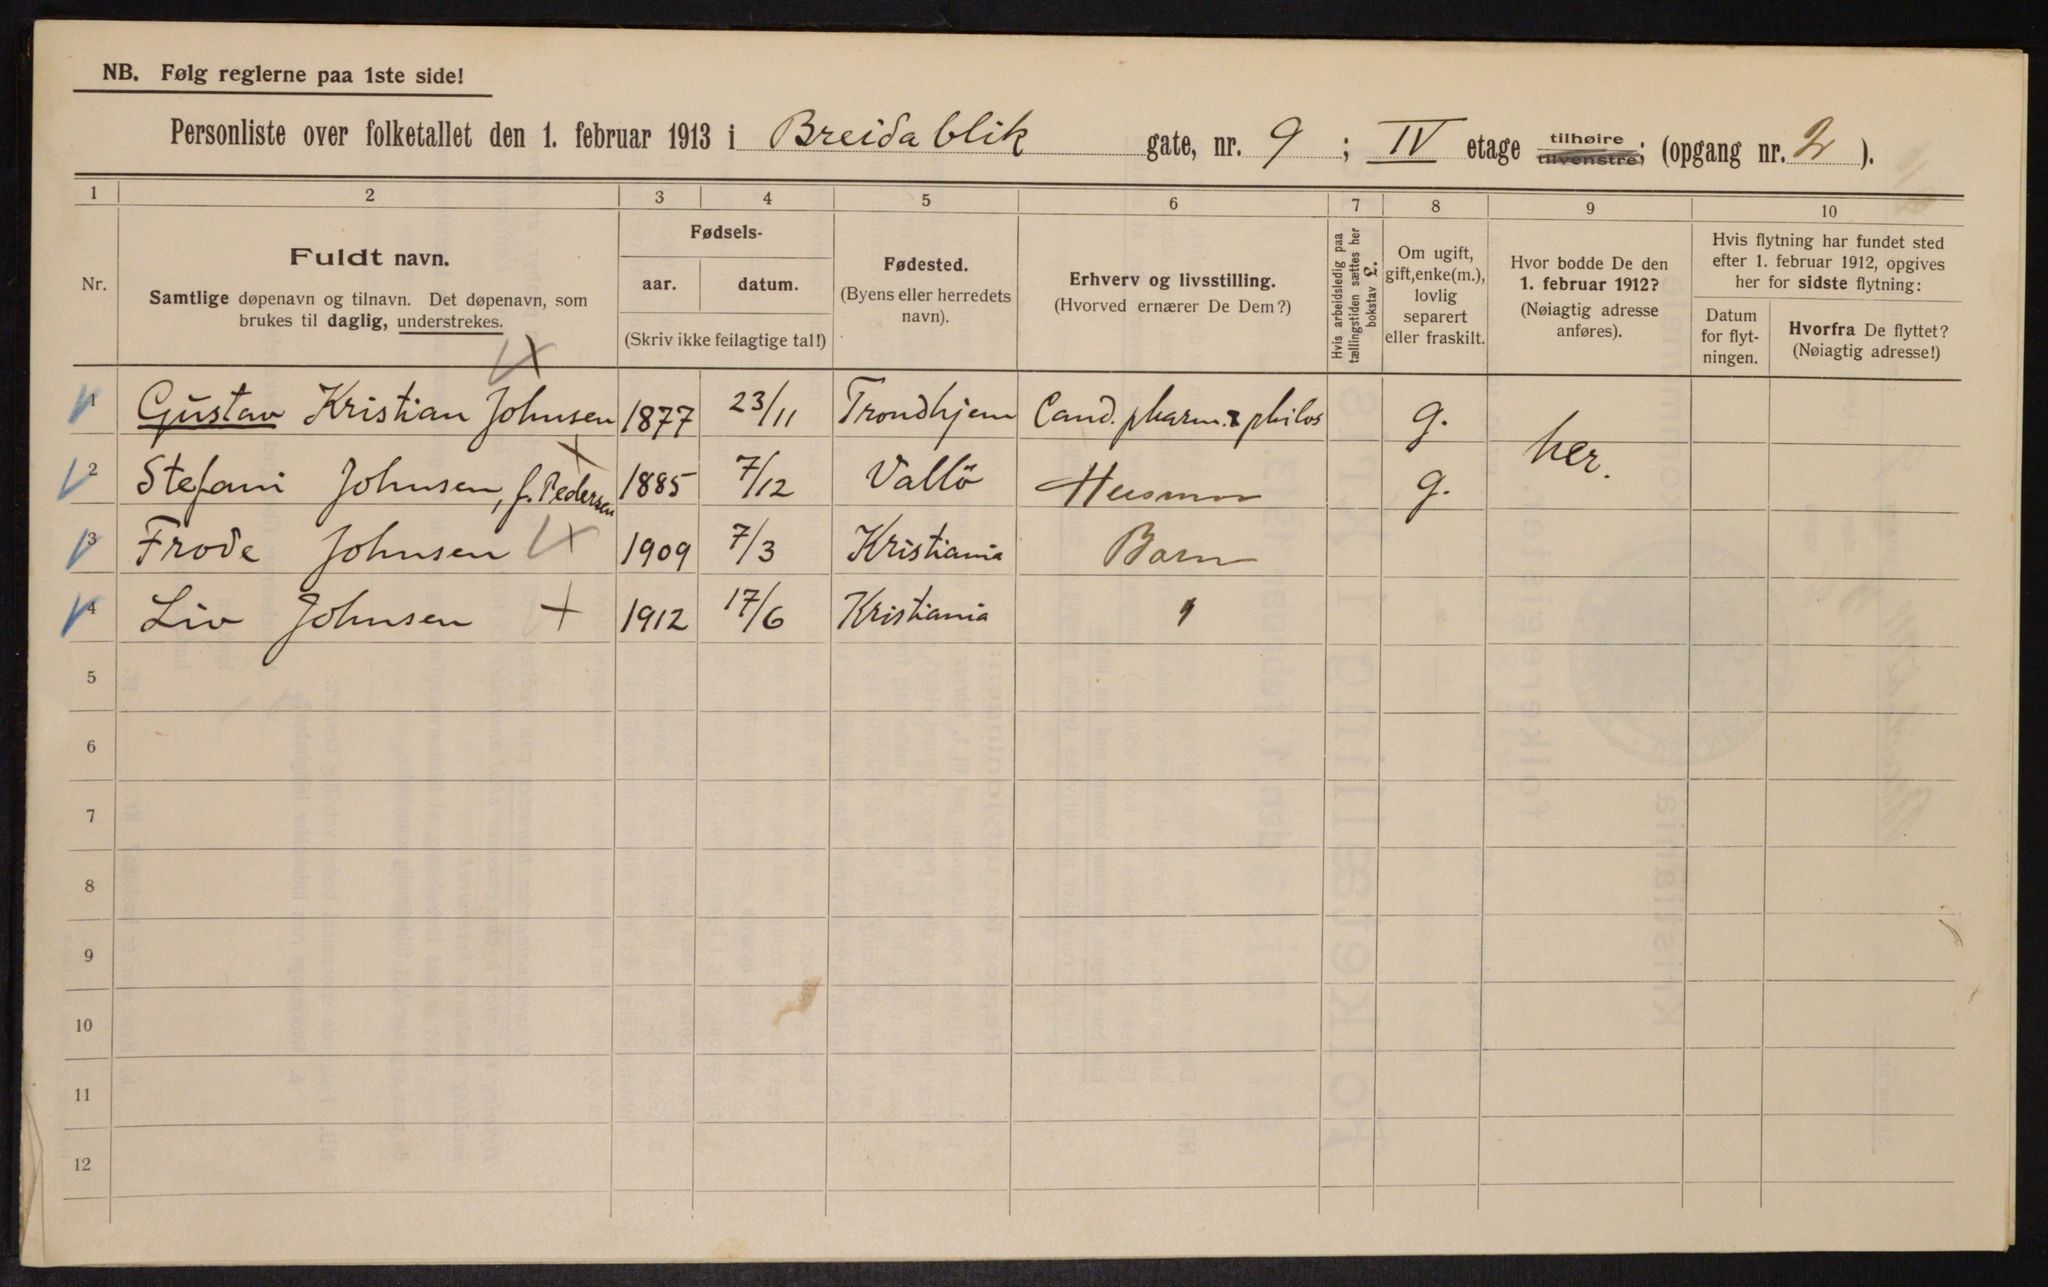 NB. Følg reglerne paa 1ste side!
Personliste over folketallet den 1. februar 1913 i Breidablik gate, nr. 9 ; IV etage tilhøire tilvenstre; (opgang nr. 2 ).
1 2 3 4 5 6 7 8 9 10
Nr.
Fuldt navn.
Samtlige døpenavn og tilnavn. Det døpenavn, som
brukes til daglig, understrekes.
Fødsels-
aar. datum.
(Skriv ikke feilagtige tal!)
Fødested.
(Byens eller herredets
navn).
Erhverv og livsstilling.
(Hvorved ernærer De Dem?)
Hvis arbeidsledig paa
tællingstiden sættes her
bokstav L.
Om ugift,
gift, enke(m.),
lovlig
separert
eller fraskilt.
Hvor bodde De den
1. februar 1912?
(Nøiagtig adresse
anføres).
Hvis flytning har fundet sted
efter 1. februar 1912, opgives
her for sidste flytning:
Datum
for flyt-
ningen.
Hvorfra De flyttet?
(Nøiagtig adresse!)
1 Gustav Kristian Johnsen 1877 23/11 Trondhjem Cand. pharm. & philos g. her.
2 Stefani Johnsen, f. Pedersen 1885 7/12 Vallö Husmor g.
3 Frode Johnsen 1909 7/3 Kristiania Barn
4 Liv Johnsen 1912 17/6 Kristiania "
5
6
7
8
9
10
11
12